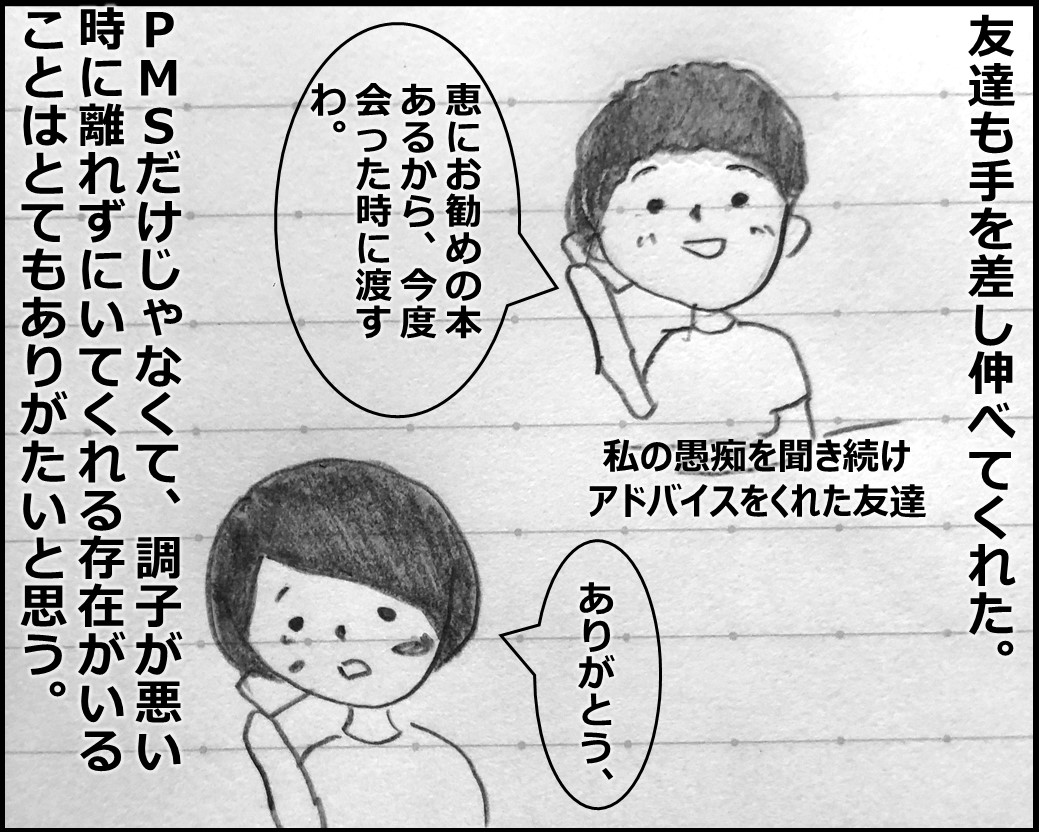 友達も手を差し伸べてくれた。
恵にお勧めの本
あるから、今度
会った時に渡す
わ。
私の愚痴を聞き続け
アドバイスをくれた友達
ありがとう、
ＰＭＳだけじゃなくて、調子が悪い
時に離れずにいてくれる存在がいる
ことはとてもありがたいと思う。